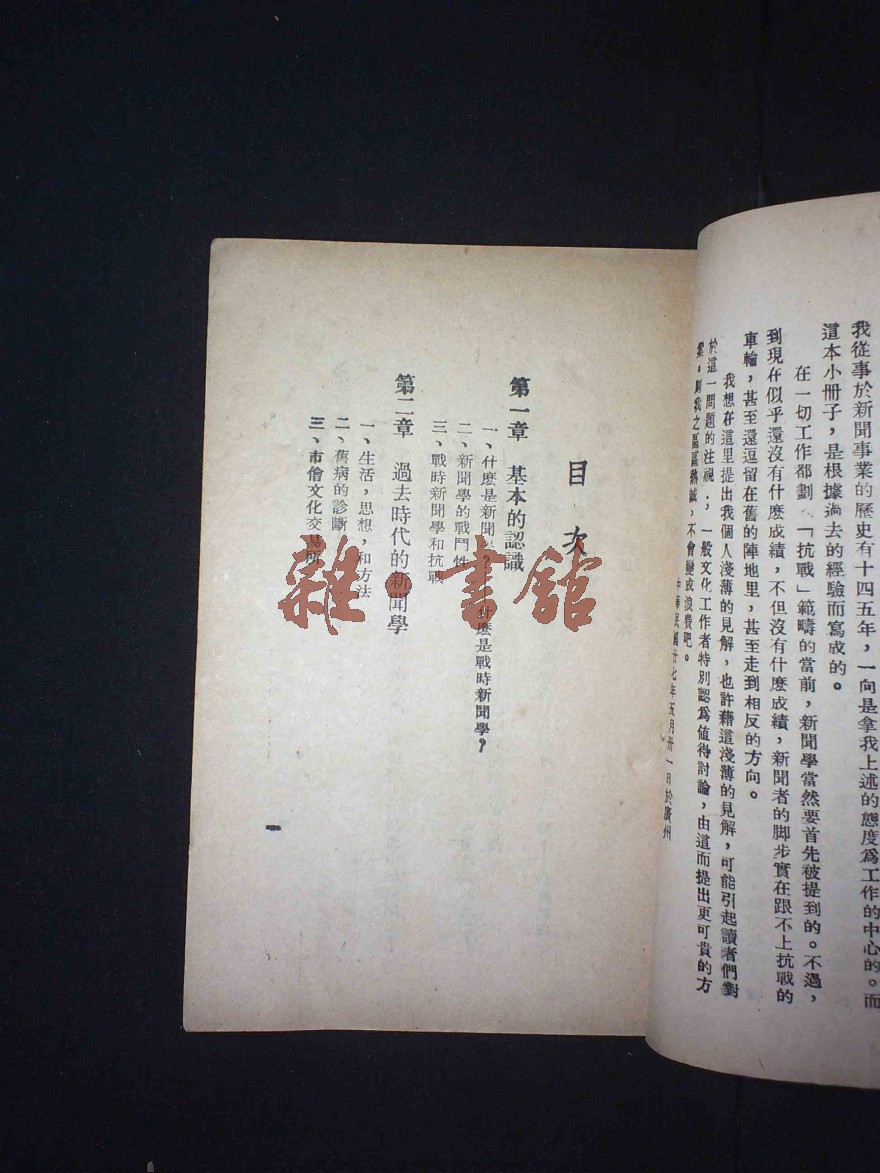 我從事於新聞事業的歷史有十四五年，一向是拿我上述的態度爲工作的中心的。而
這本小冊子，是根據過去的經驗而寫成的。
在一切工作都劃「抗戰」範疇的當前，新聞學當然要首先被提到的。不過，
到現在似乎還沒有什麼成績，不但沒有什麼成績，新聞者的脚步實在跟不上抗戰的
車輪，甚至還逗留在舊的陣地里，甚至走到相反的方向。
我想在這里提出我個人淺薄的見解，也許藉這淺薄的見解，可能引起讀者們對
於這一問題的注視；，一般文化工作者特別認爲值得討論，由這而提出更可貴的方
案。則我之區區熱誠，不會變成浪費吧。
中華民國廿七年五月卅一日於廣州
目次
第一章 基本的認識
一、什麽是新聞 什麽是戰時新聞學，
二、新聞學的戰鬥性
三、戰時新聞學和抗戰
第二章 過去時代的新聞學
一、生活，思想，和方法
二、舊病的診斷
三、市儈文化交易所
一
雜·書館